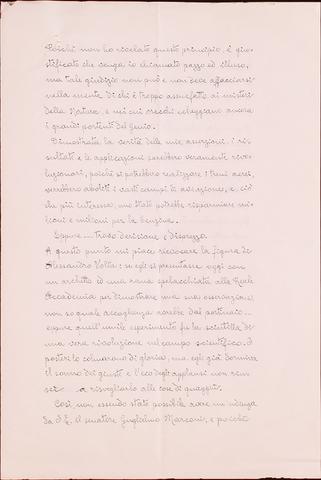 Poichè non ho rivelato questo principio, è giu-
stificato che venga io chiamato pazzo ed illuso,
ma tale giudizio non può e non deve affacciarsi
nella mente di chi è troppo assuefatto ai misteri
della Natura, e nei cui orecchi echeggiano ancora
i grandi portenti del Genio.
Dimostrata la verità delle mie asserzioni, i ri-
sultati e le applicazioni sarebbero veramente rivo-
luzionari, poichè si potrebbero realizzare i treni aerei,
sarebbero aboliti i vasti campi di aviazione, e, ciò
che più interessa, uno Stato potrebbe risparmiare mi-
lioni e milioni per la benzina.
Eppure.... trovo derisione e disprezzo.
A questo punto mi piace rievocare la figura di
Alessandro Volta: se egli si presentasse oggi con
un archetto ed una rana spelacchiata alla Reale
Accademia per dimostrare una sua osservazione,
non so quale accoglienza avrebbe dal portinaio...
eppure quell'umile esperimento fu la scintilla di
una vera rivoluzione nel campo scientifico. I
posteri lo colmarono di gloria, ma, egli già dormiva
il sonno dei giusti e l'eco degli applausi non riu-
scì a risvegliarlo alle cose di quaggiù.
Così non essendo stato possibile avere un'udienza
da S.E. il senatore Guglielmo Marconi, e poichè